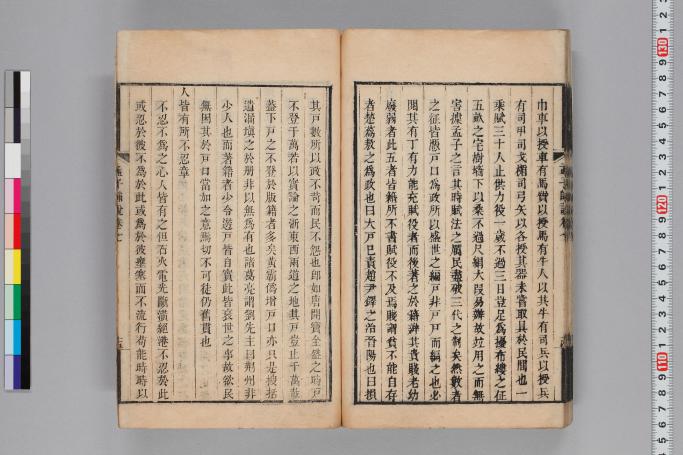 巾車以授車有馬質以授馬有牛人以共牛有司兵以授兵
有司甲司戈楯司弓矢以各授其器未嘗取具於民間也一
乘賦三十人止供力役一歲不過三日豈足為擾布縷之征
五畝之宅樹墻下以桑不過尺絹大段易辦故竝用之而無
害據孟子之言其時賦法之厲民盡破三代之制矣然數者
之征皆憑戸口為政所以盛世之編戸非戸戸而編之也必
閱其有丁有力能充賦役者而後著之於籍辨其貴賤老幼
廢弱者此五者皆籍所不書賦役不及焉賤謂貧不能自存
者楚蒍敖之為政也曰大戸已責趙尹鐸之治晉陽也曰損
其戸數所以政不苛而民不怨也即如唐開寶全盛之時戸
不登千萬若以實論之浙東西兩道之地其戸豈止千萬
蓋下戸之不登於版籍者多矣黃霸偽增戸口亦只是搜括
遺漏填之於册非以無為有也諸葛亮謂劉先主曰荆州非
少人也而著籍者少令遊戸皆自實此皆衰世之事故欲民
無困其於戸口當如之意焉切不可徒仍舊貫也
人皆有所不忍章
不忍不為之心人皆有之但石火電光斷潢絕港不忍於此
或忍於彼不為於此或為於彼壅塞而不流行苟能時時以
孟子師說卷七